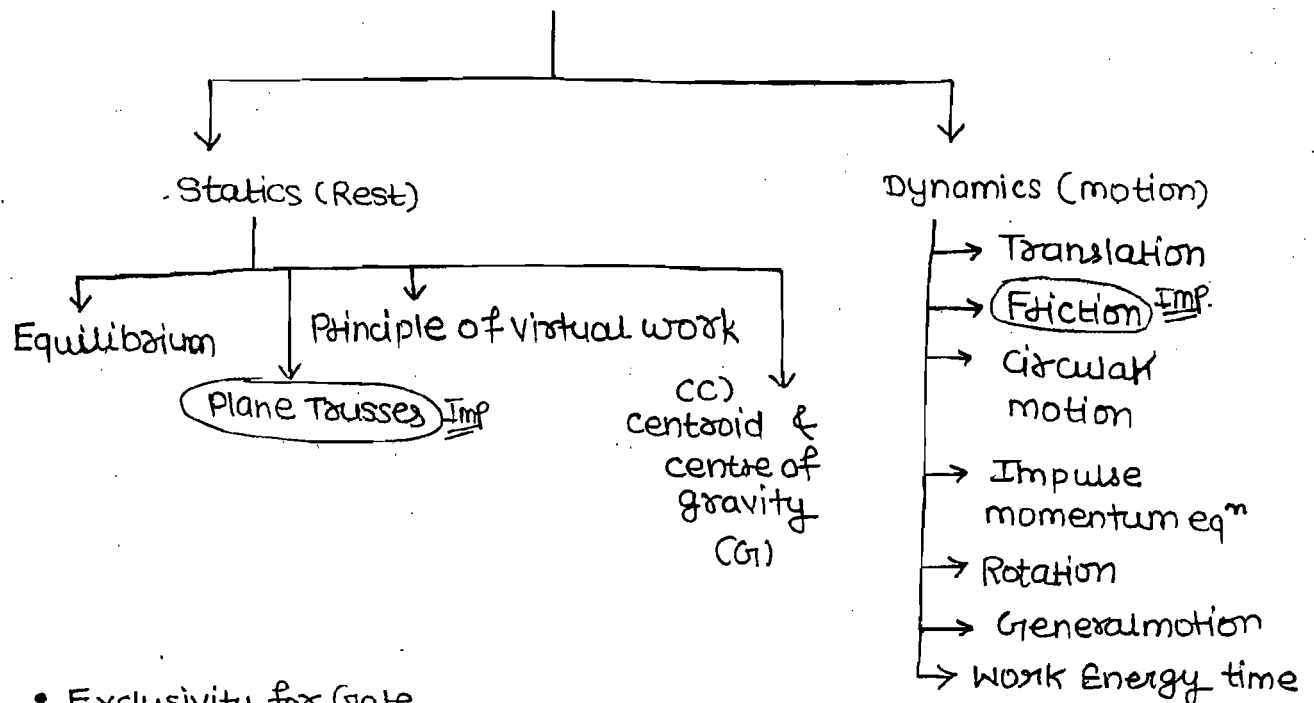 Statics (Rest)
Equilibrium
Plane Trusses Imp
Principle of virtual work
(C)
centroid &
centre of
gravity
(G)
Dynamics (motion)
Translation
Friction Imp.
Circular
motion
Impulse
momentum eqⁿ
Rotation
General motion
Work Energy time
• Exclusivity for Gate